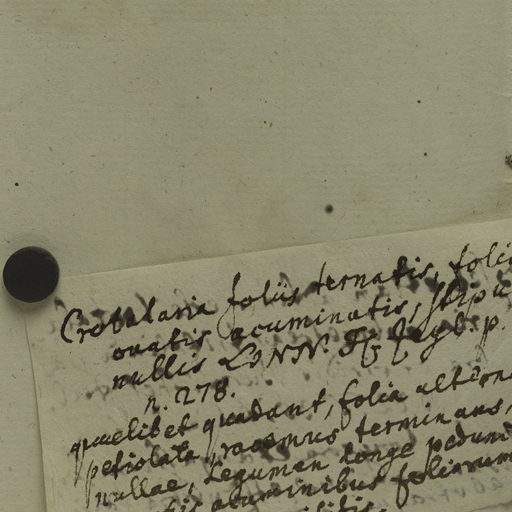 Crotalaria foliis ternatis, folio
ovatis acuminatis, stipu
nullis LINN. Fl. Zeyl. p.
n. 278.
quaelibet quadant, folia alterna
petiolata, racemus terminans,
nullae, Legumen longe pedun
acuminibus foliorum